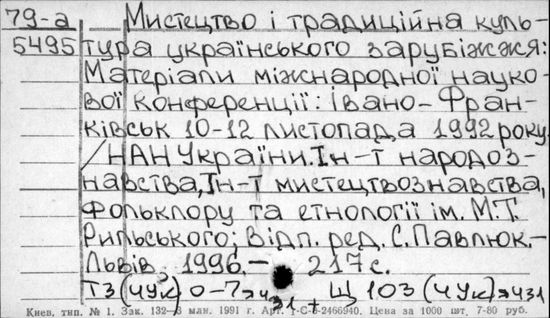 79-а Мистецтво і традиційна куль-
5495 тура українського зарубіжжя:
Матеріали міжнародної науко-
вої конференції: Івано-Фран-
ківськ 10-12 листопада 1992 року
/НАН України. Ін-т народоз-
навства, Ін-т мистецтвознавства,
фольклору та етнології ім. М.Т.
Рильського; Відп. ред. С. Павлюк.-
Львів, 1996.- 217 с.
ТЗ (4УК) 0-7я431 + Щ 103 (4УК)я431
Киев, тип. № 1. Зак. 132—3 млн. 1991 г. 2466940. Цена за 1000 шт. 7-80 руб.